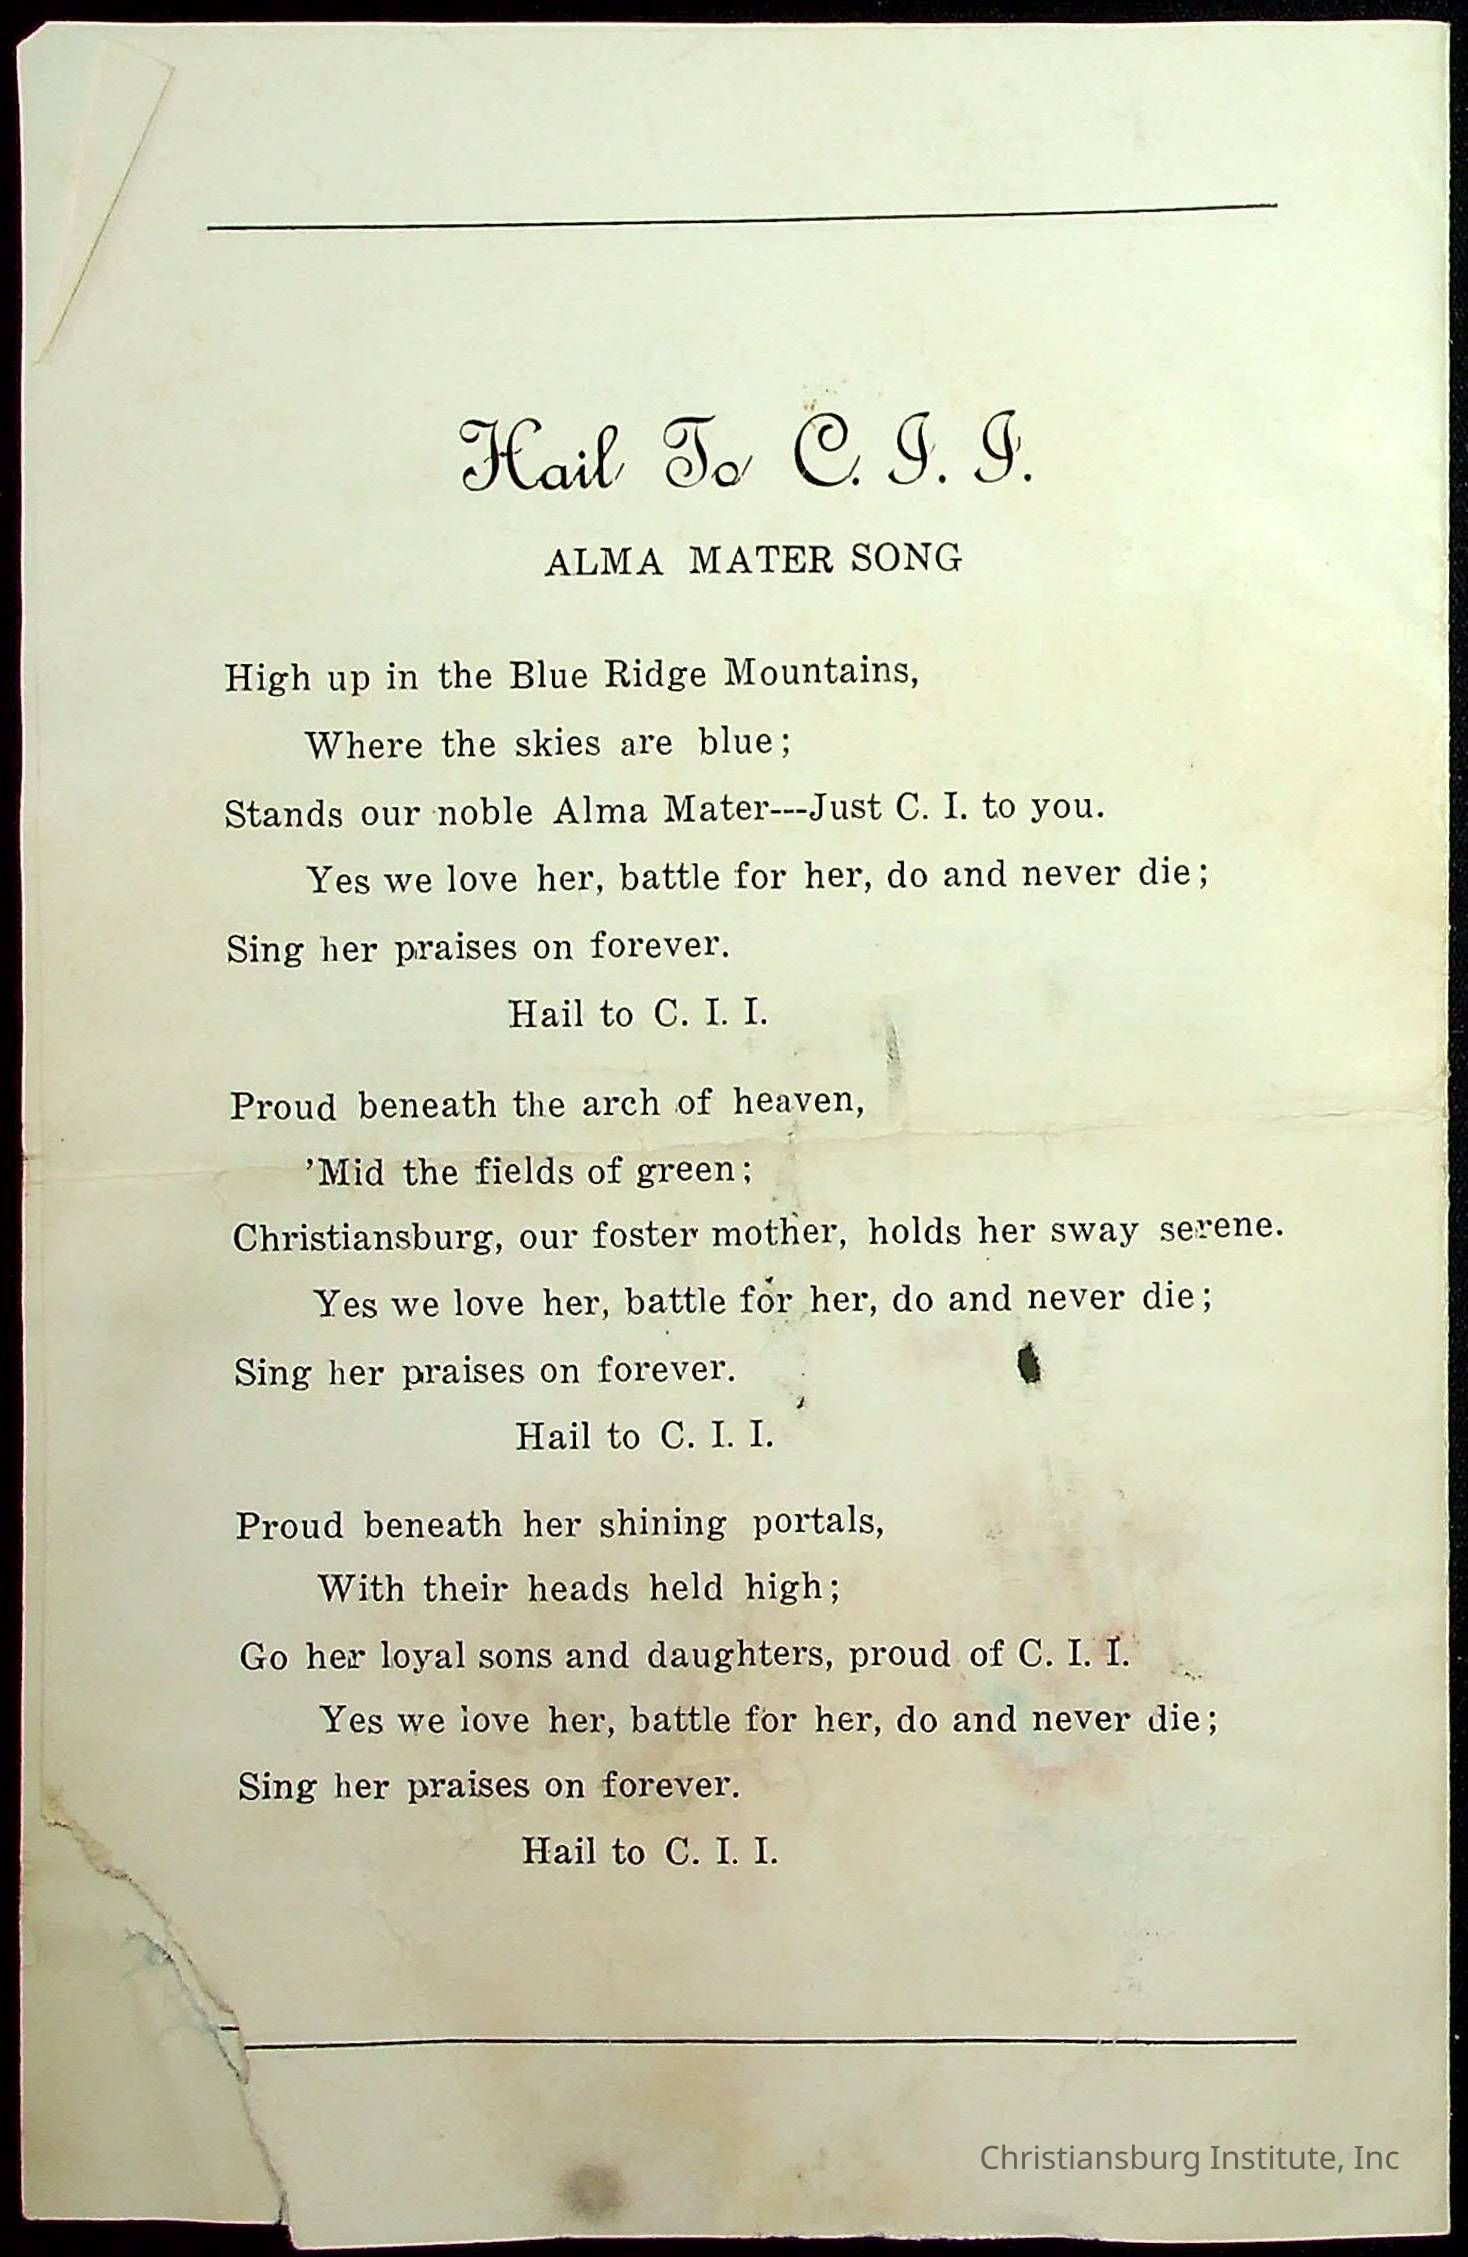 Hail To C. I. I.
ALMA MATER SONG
High up in the Blue Ridge Mountains,
Where the skies are blue;
Stands our noble Alma Mater---Just C. I. to you.
Yes we love her, battle for her, do and never die;
Sing her praises on forever.
Hail to C. I. I.
Proud beneath the arch of heaven,
'Mid the fields of green;
Christiansburg, our foster mother, holds her sway serene.
Yes we love her, battle for her, do and never die;
Sing her praises on forever.
Hail to C. I. I.
Proud beneath her shining portals,
With their heads held high;
Go her loyal sons and daughters, proud of C. I. I.
Yes we love her, battle for her, do and never die;
Sing her praises on forever.
Hail to C. I. I.
Christiansburg Institute, Inc